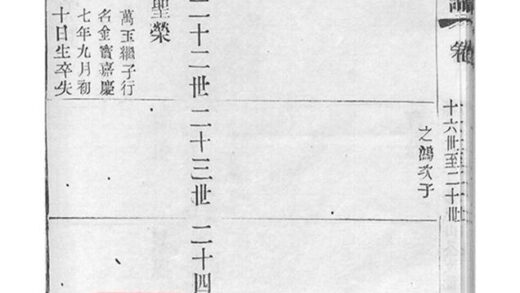 十六世至二十世
之鴻次子
二十二世 二十三世 二十四
聖榮
萬玉繼子行
名金寶嘉慶
七年九月初
十日生卒失